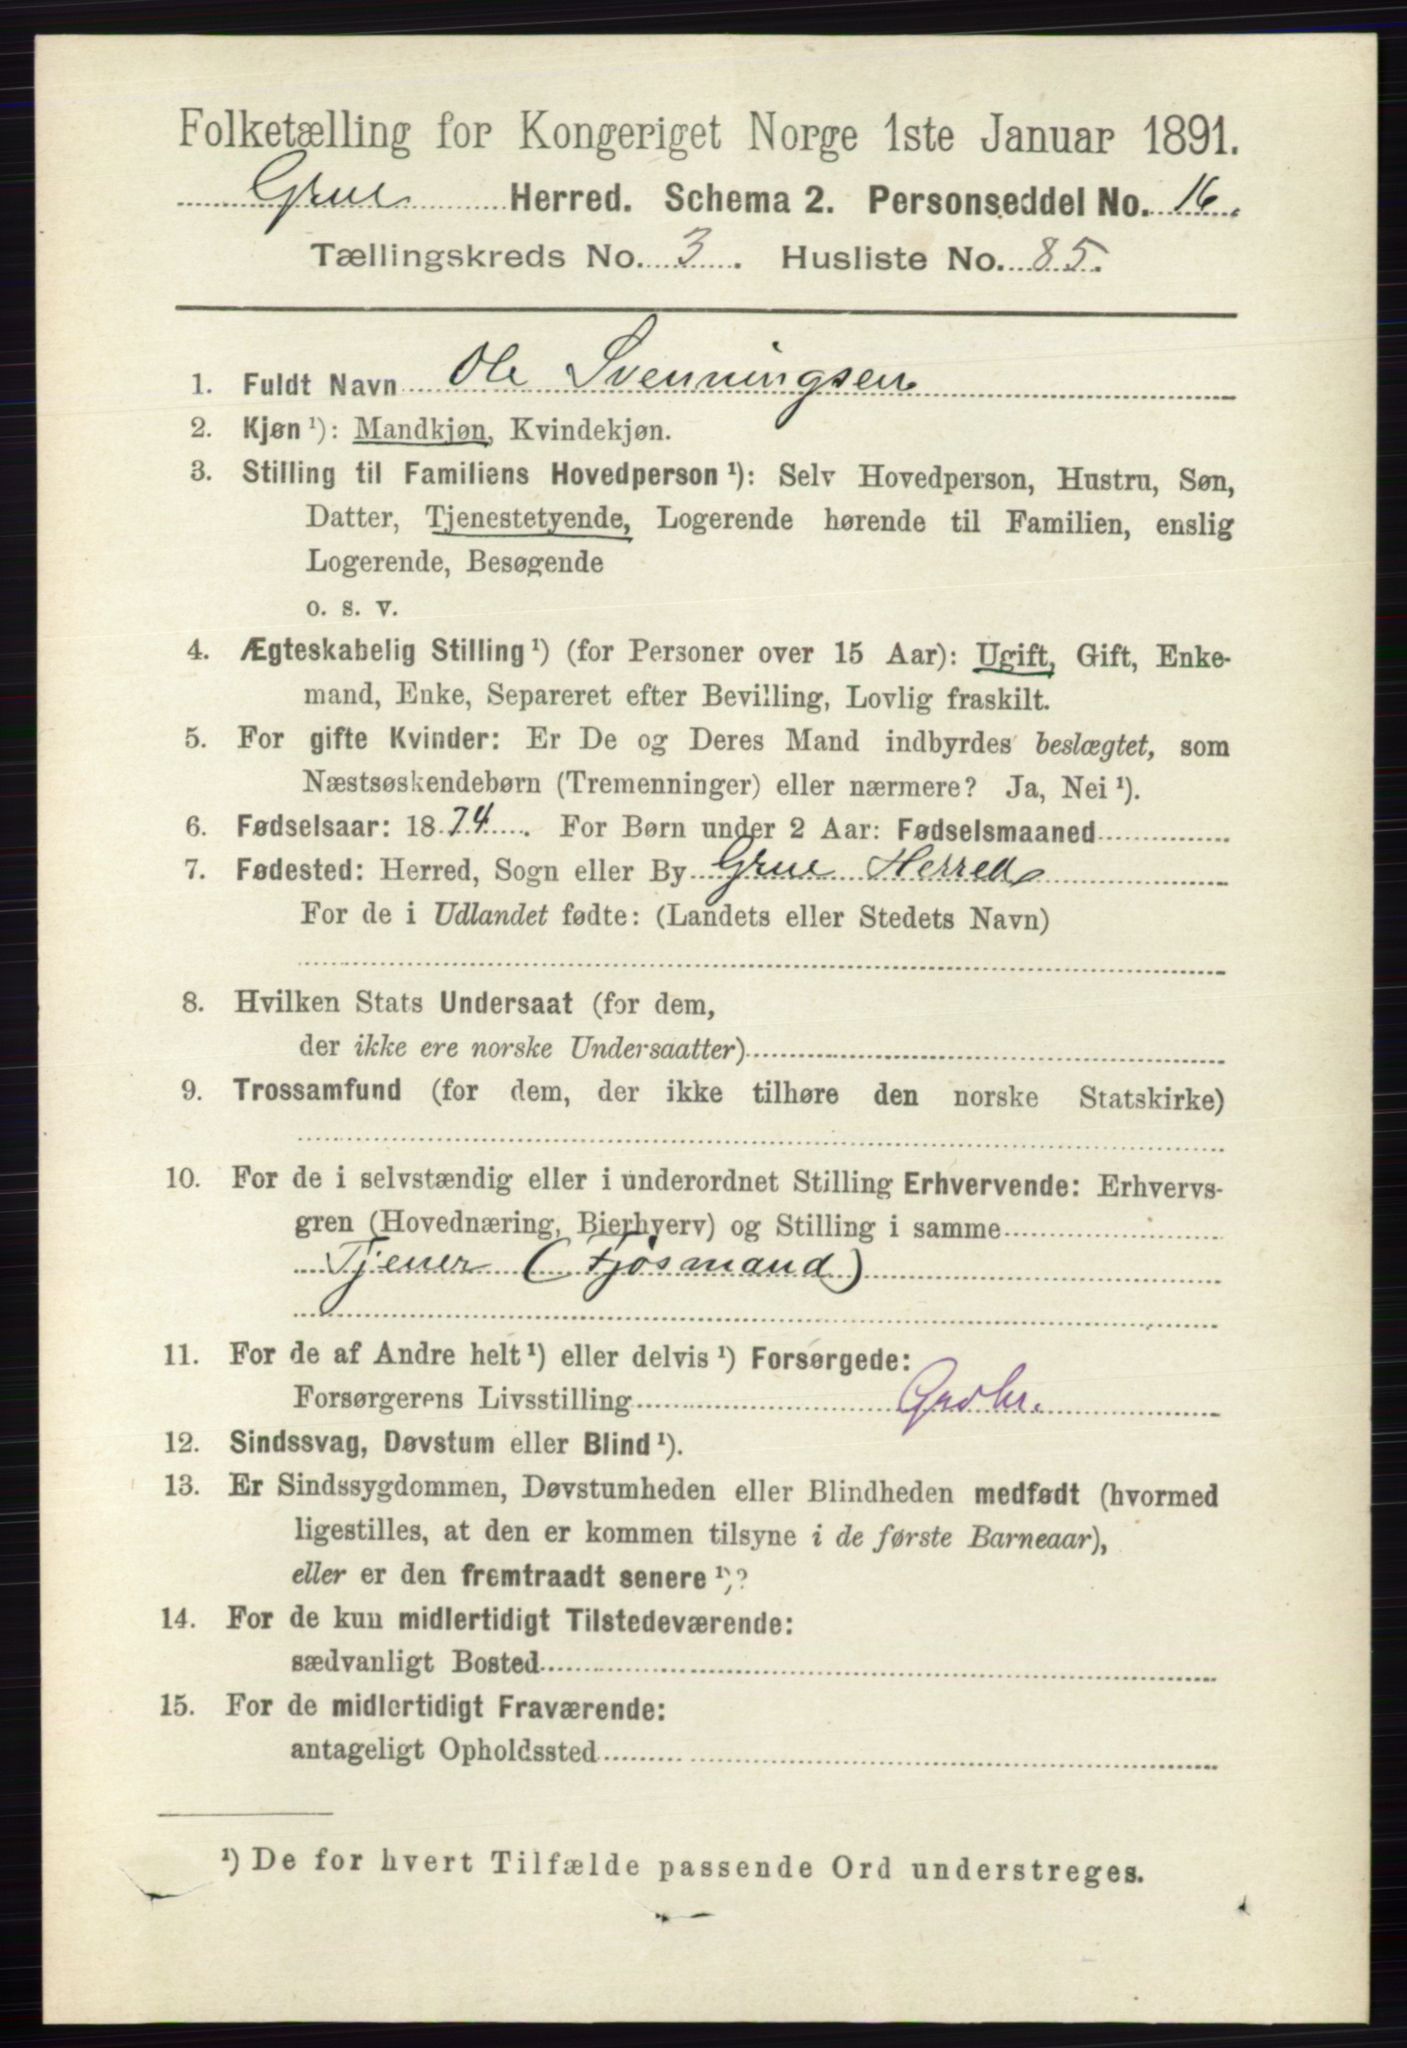 Folketælling for Kongeriget Norge 1ste Januar 1891.
Grue Herred. Schema 2. Personseddel No. 16.
Tællingskreds No. 3. Husliste No. 85.
1. Fuldt Navn Ole Svenningsen
2. Kjøn ¹): Mandkjøn, Kvindekjøn.
3. Stilling til Familiens Hovedperson ¹): Selv Hovedperson, Hustru, Søn,
Datter, Tjenestetyende, Logerende hørende til Familien, enslig
Logerende, Besøgende
o. s. v.
4. Ægteskabelig Stilling ¹) (for Personer over 15 Aar): Ugift, Gift, Enke-
mand, Enke, Separeret efter Bevilling, Lovlig fraskilt.
5. For gifte Kvinder: Er De og Deres Mand indbyrdes beslægtet, som
Næstsøskendebørn (Tremenninger) eller nærmere? Ja, Nei ¹).
6. Fødselsaar: 1874. For Børn under 2 Aar: Fødselsmaaned
7. Fødested: Herred, Sogn eller By Grue Herred
For de i Udlandet fødte: (Landets eller Stedets Navn)
8. Hvilken Stats Undersaat (for dem,
der ikke ere norske Undersaatter)
9. Trossamfund (for dem, der ikke tilhøre den norske Statskirke)
10. For de i selvstændig eller i underordnet Stilling Erhvervende: Erhvervs-
gren (Hovednæring, Bierhverv) og Stilling i samme
Tjener (Fjøsmand)
11. For de af Andre helt ¹) eller delvis ¹) Forsørgede:
Forsørgerens Livsstilling Gaabr.
12. Sindssvag, Døvstum eller Blind ¹).
13. Er Sindssygdommen, Døvstumheden eller Blindheden medfødt (hvormed
ligestilles, at den er kommen tilsyne i de første Barneaar),
eller er den fremtraadt senere ¹)?
14. For de kun midlertidigt Tilstedeværende:
sædvanligt Bosted
15. For de midlertidigt Fraværende:
antageligt Opholdssted
¹) De for hvert Tilfælde passende Ord understreges.